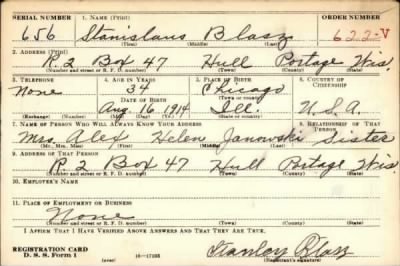 SERIAL NUMBER 1. NAME (Print) ORDER NUMBER
656 Stanislaus Blasz 622-V
(First) (Middle) (Last)
2. ADDRESS (Print)
R.2 Box 47 Hull Portage Wis.
(Number and street or R. F. D. number) (Town) (County) (State)
3. TELEPHONE 4. AGE IN YEARS 5. PLACE OF BIRTH 6. COUNTRY OF CITIZENSHIP
None 34 Chicago
DATE OF BIRTH (Town or county)
Aug. 16, 1914 Ill. U.S.A.
(Exchange) (Number) (Mo.) (Day) (Yr.) (State or country)
7. NAME OF PERSON WHO WILL ALWAYS KNOW YOUR ADDRESS 8. RELATIONSHIP OF THAT PERSON
Mrs. Alex Helen Janowski Sister
(Mr., Mrs., Miss) (First) (Middle) (Last)
9. ADDRESS OF THAT PERSON
R.2 Box 47 Hull Portage Wis.
(Number and street or R. F. D. number) (Town) (County) (State)
10. EMPLOYER'S NAME
11. PLACE OF EMPLOYMENT OR BUSINESS
None
(Number and street or R. F. D. number) (Town) (County) (State)
I AFFIRM THAT I HAVE VERIFIED ABOVE ANSWERS AND THAT THEY ARE TRUE.
REGISTRATION CARD Stanley Blasz
D. S. S. Form 1 (over) 16—17105 (Registrant's signature)